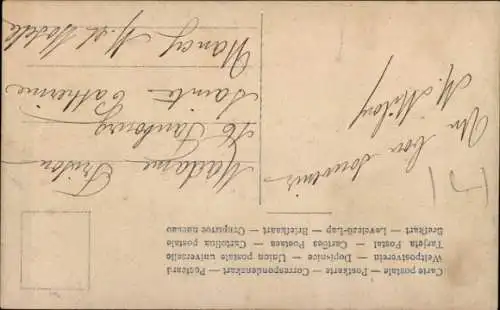 Carte postale — Postkarte — Correspondenzkart — Postcard
Weltpostverein — Dopisnice — Union postale universelle
Tarjeta Postal — Cartões Postaes — Cartolina postale
Brefkart — Levelező-Lap — Briefkaart — Открытое письмо
Un bon souvenir
M.
Madame
Faubourg
Sainte Catherine
Nancy M. et Moselle